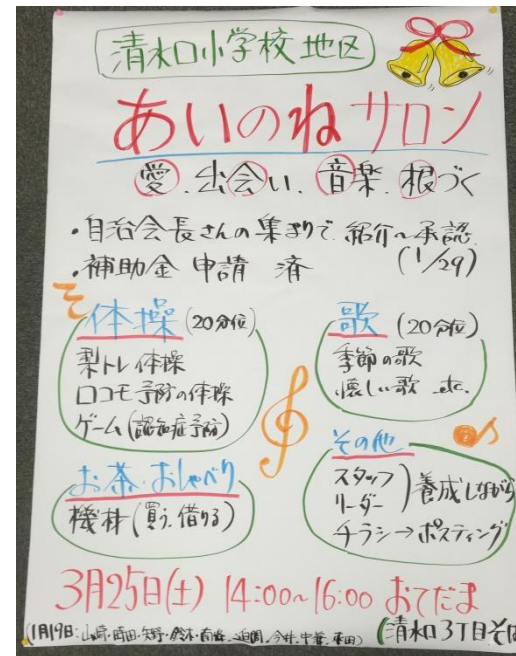 清水口小学校地区
あいのねサロン
愛.出会い.音楽.根づく
・自治会長さんの集まりで紹介〜承認
・補助金申請済 (1/29)
そ
体操(20分位)
梨トレ体操
ロコモ予防の体操
ゲーム(認知症予防)
歌(20分位)
季節の歌
懐しい歌 etc.
お茶.おしゃべり
機材(買う.借りる)
その他
スタッフ
リーダー)養成しながら
チラシ→ポスティング
3月25日(土) 14:00〜16:00 おてだま
(1月19日:山崎・時田・矢野・鈴木・ 今井・
(清水口3丁目そば